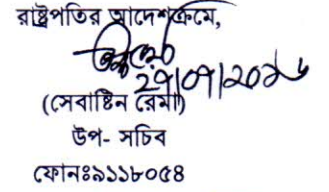 রাষ্ট্রপতির আদেশক্রমে,
২৭/০৭/২০১৬
(সেবাষ্টিন রেমা)
উপ- সচিব
ফোনঃ৯১১৮০৫৪